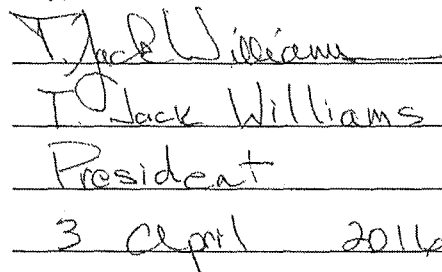 T. Jack Williams
T. Jack Williams
President
3 April 2016